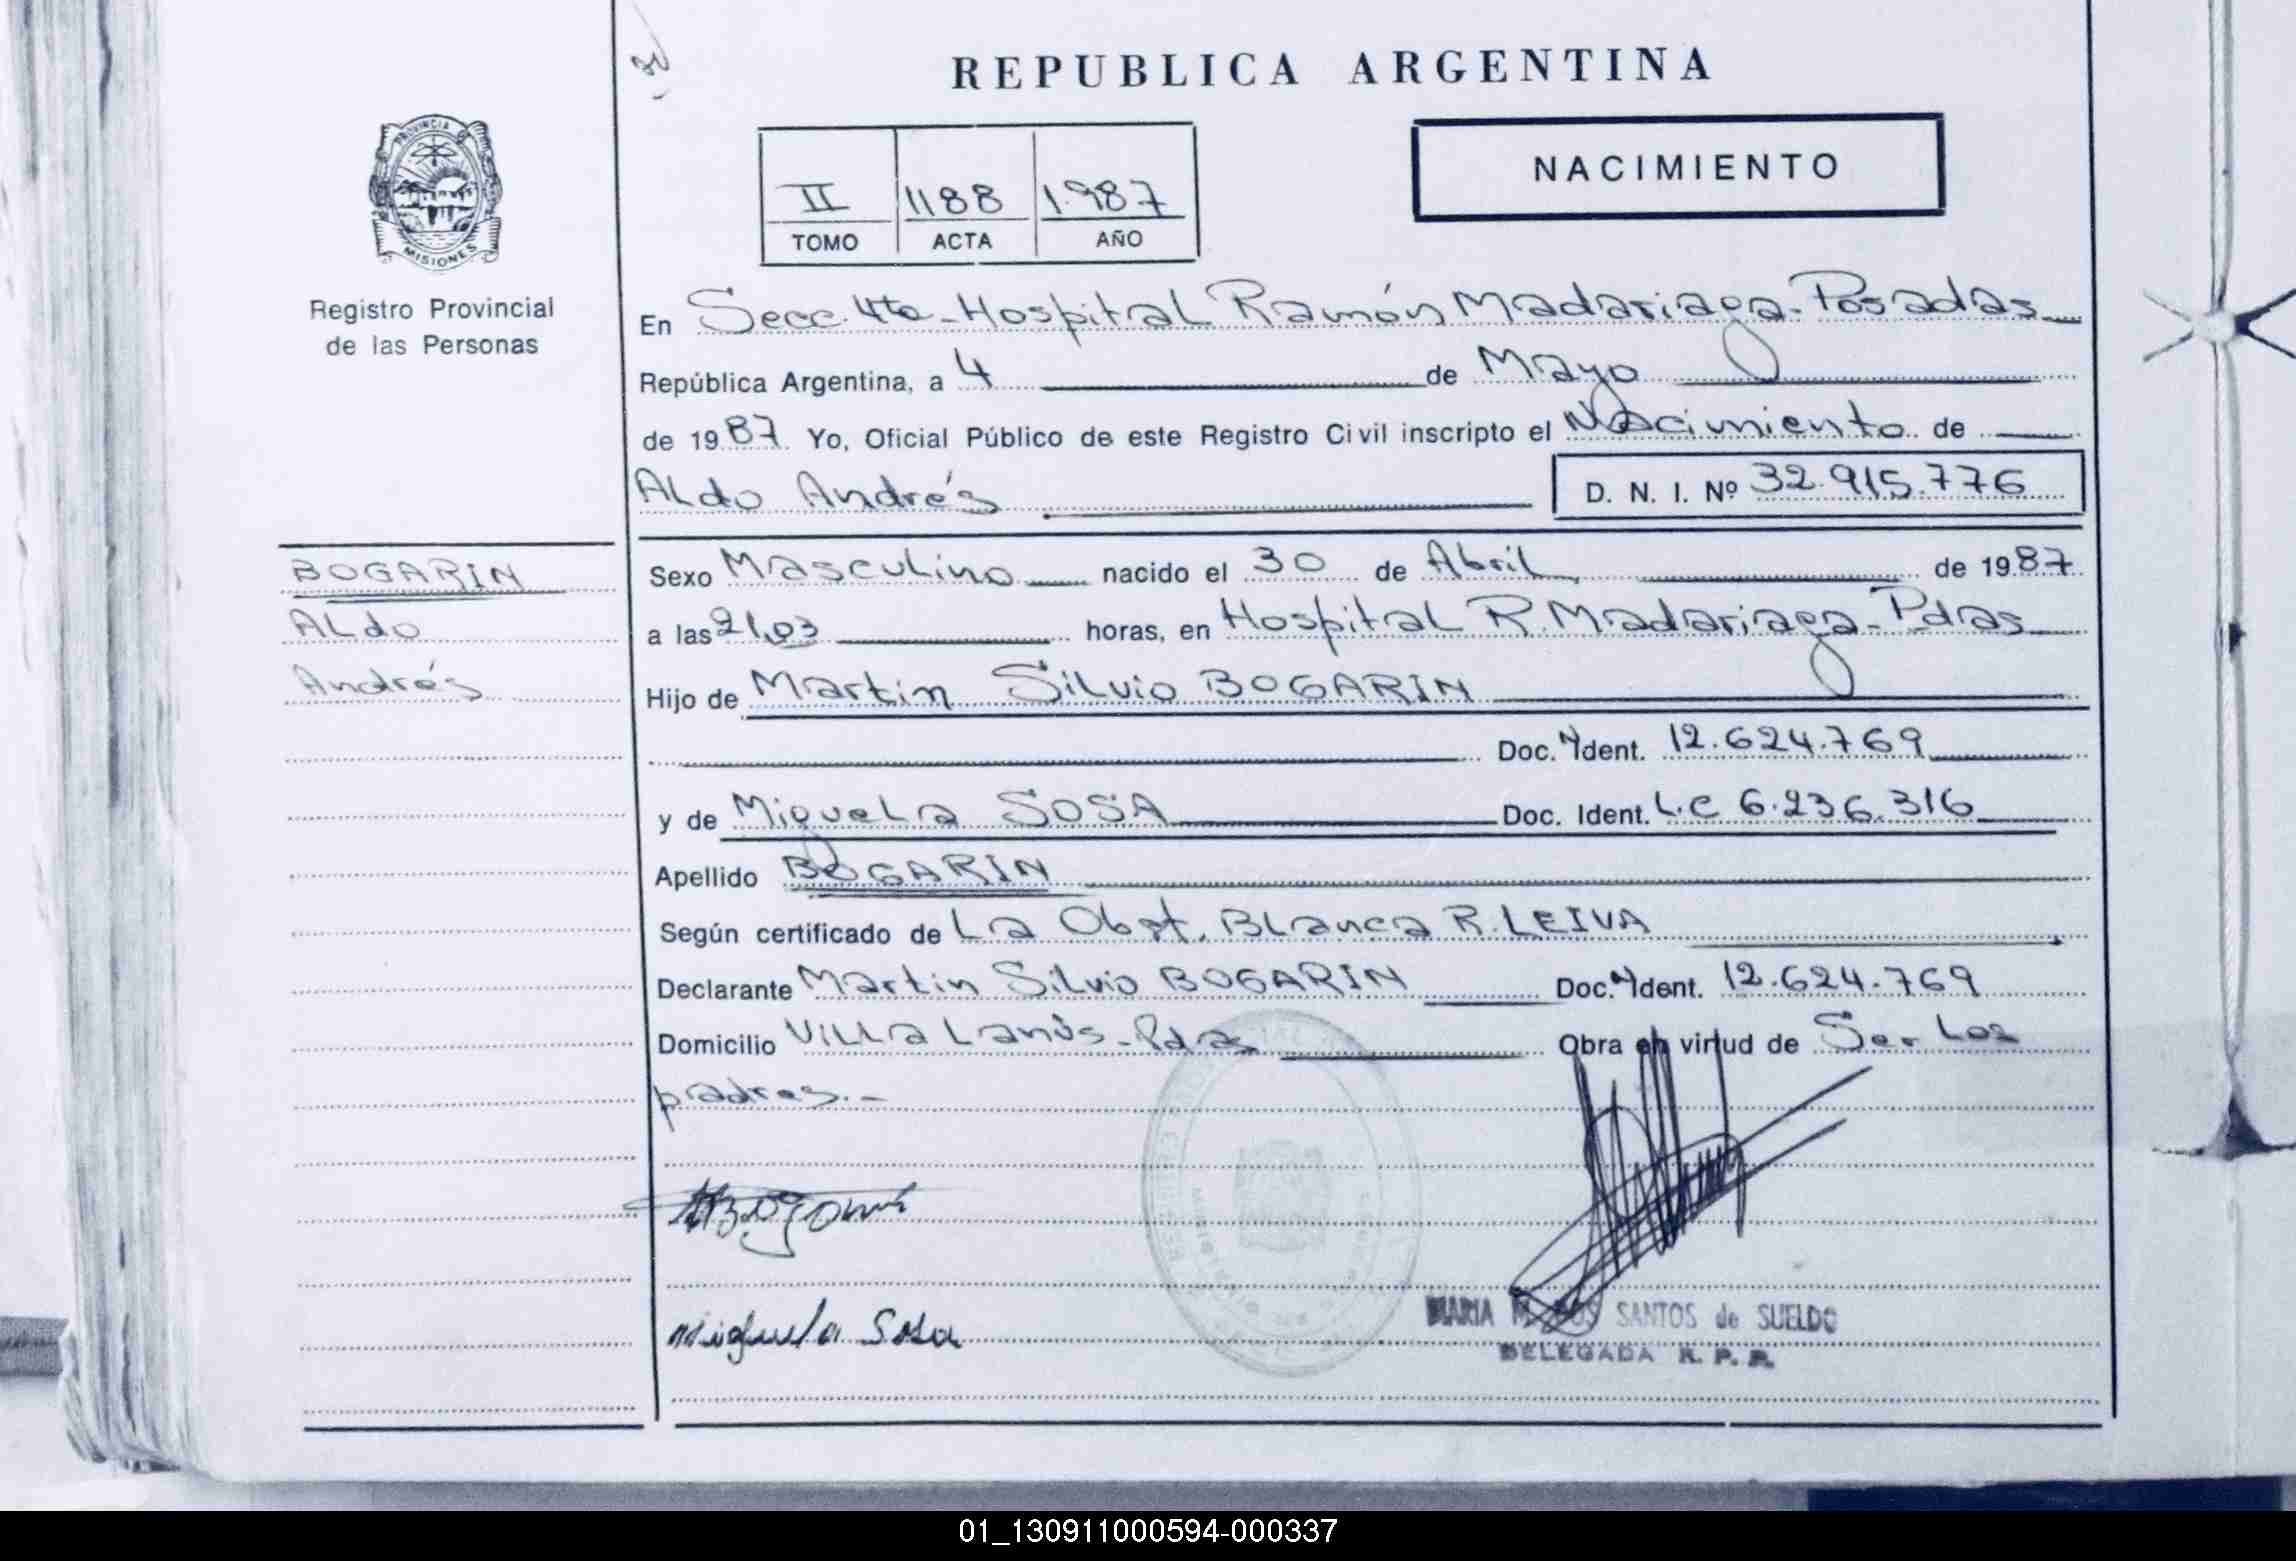 REPUBLICA ARGENTINA
PROVINCIA DE
MISIONES
Registro Provincial
de las Personas
II 1188 1.987
TOMO ACTA AÑO
NACIMIENTO
En Secc. 4ta - Hospital Ramón Madariaga - Posadas
República Argentina, a 4 de Mayo
de 1987 Yo, Oficial Público de este Registro Civil inscripto el Nacimiento de
Aldo Andrés D. N. I. Nº 32.915.776
BOGARIN
Aldo
Andrés
Sexo Masculino nacido el 30 de Abril de 1987
a las 21,03 horas, en Hospital R. Madariaga - Pdas
Hijo de Martin Silvio BOGARIN
Doc. Ident. 12.624.769
y de Miguela SOSA Doc. Ident. L.C 6.236.316
Apellido BOGARIN
Según certificado de La Obst. Blanca R. LEIVA
Declarante Martin Silvio BOGARIN Doc. Ident. 12.624.769
Domicilio Villa Lanús - Pdas Obra en virtud de Ser los
padres.-
Miguela Sosa
MARIA SANTOS de SUELDO
DELEGADA R. P. P.
01_130911000594-000337